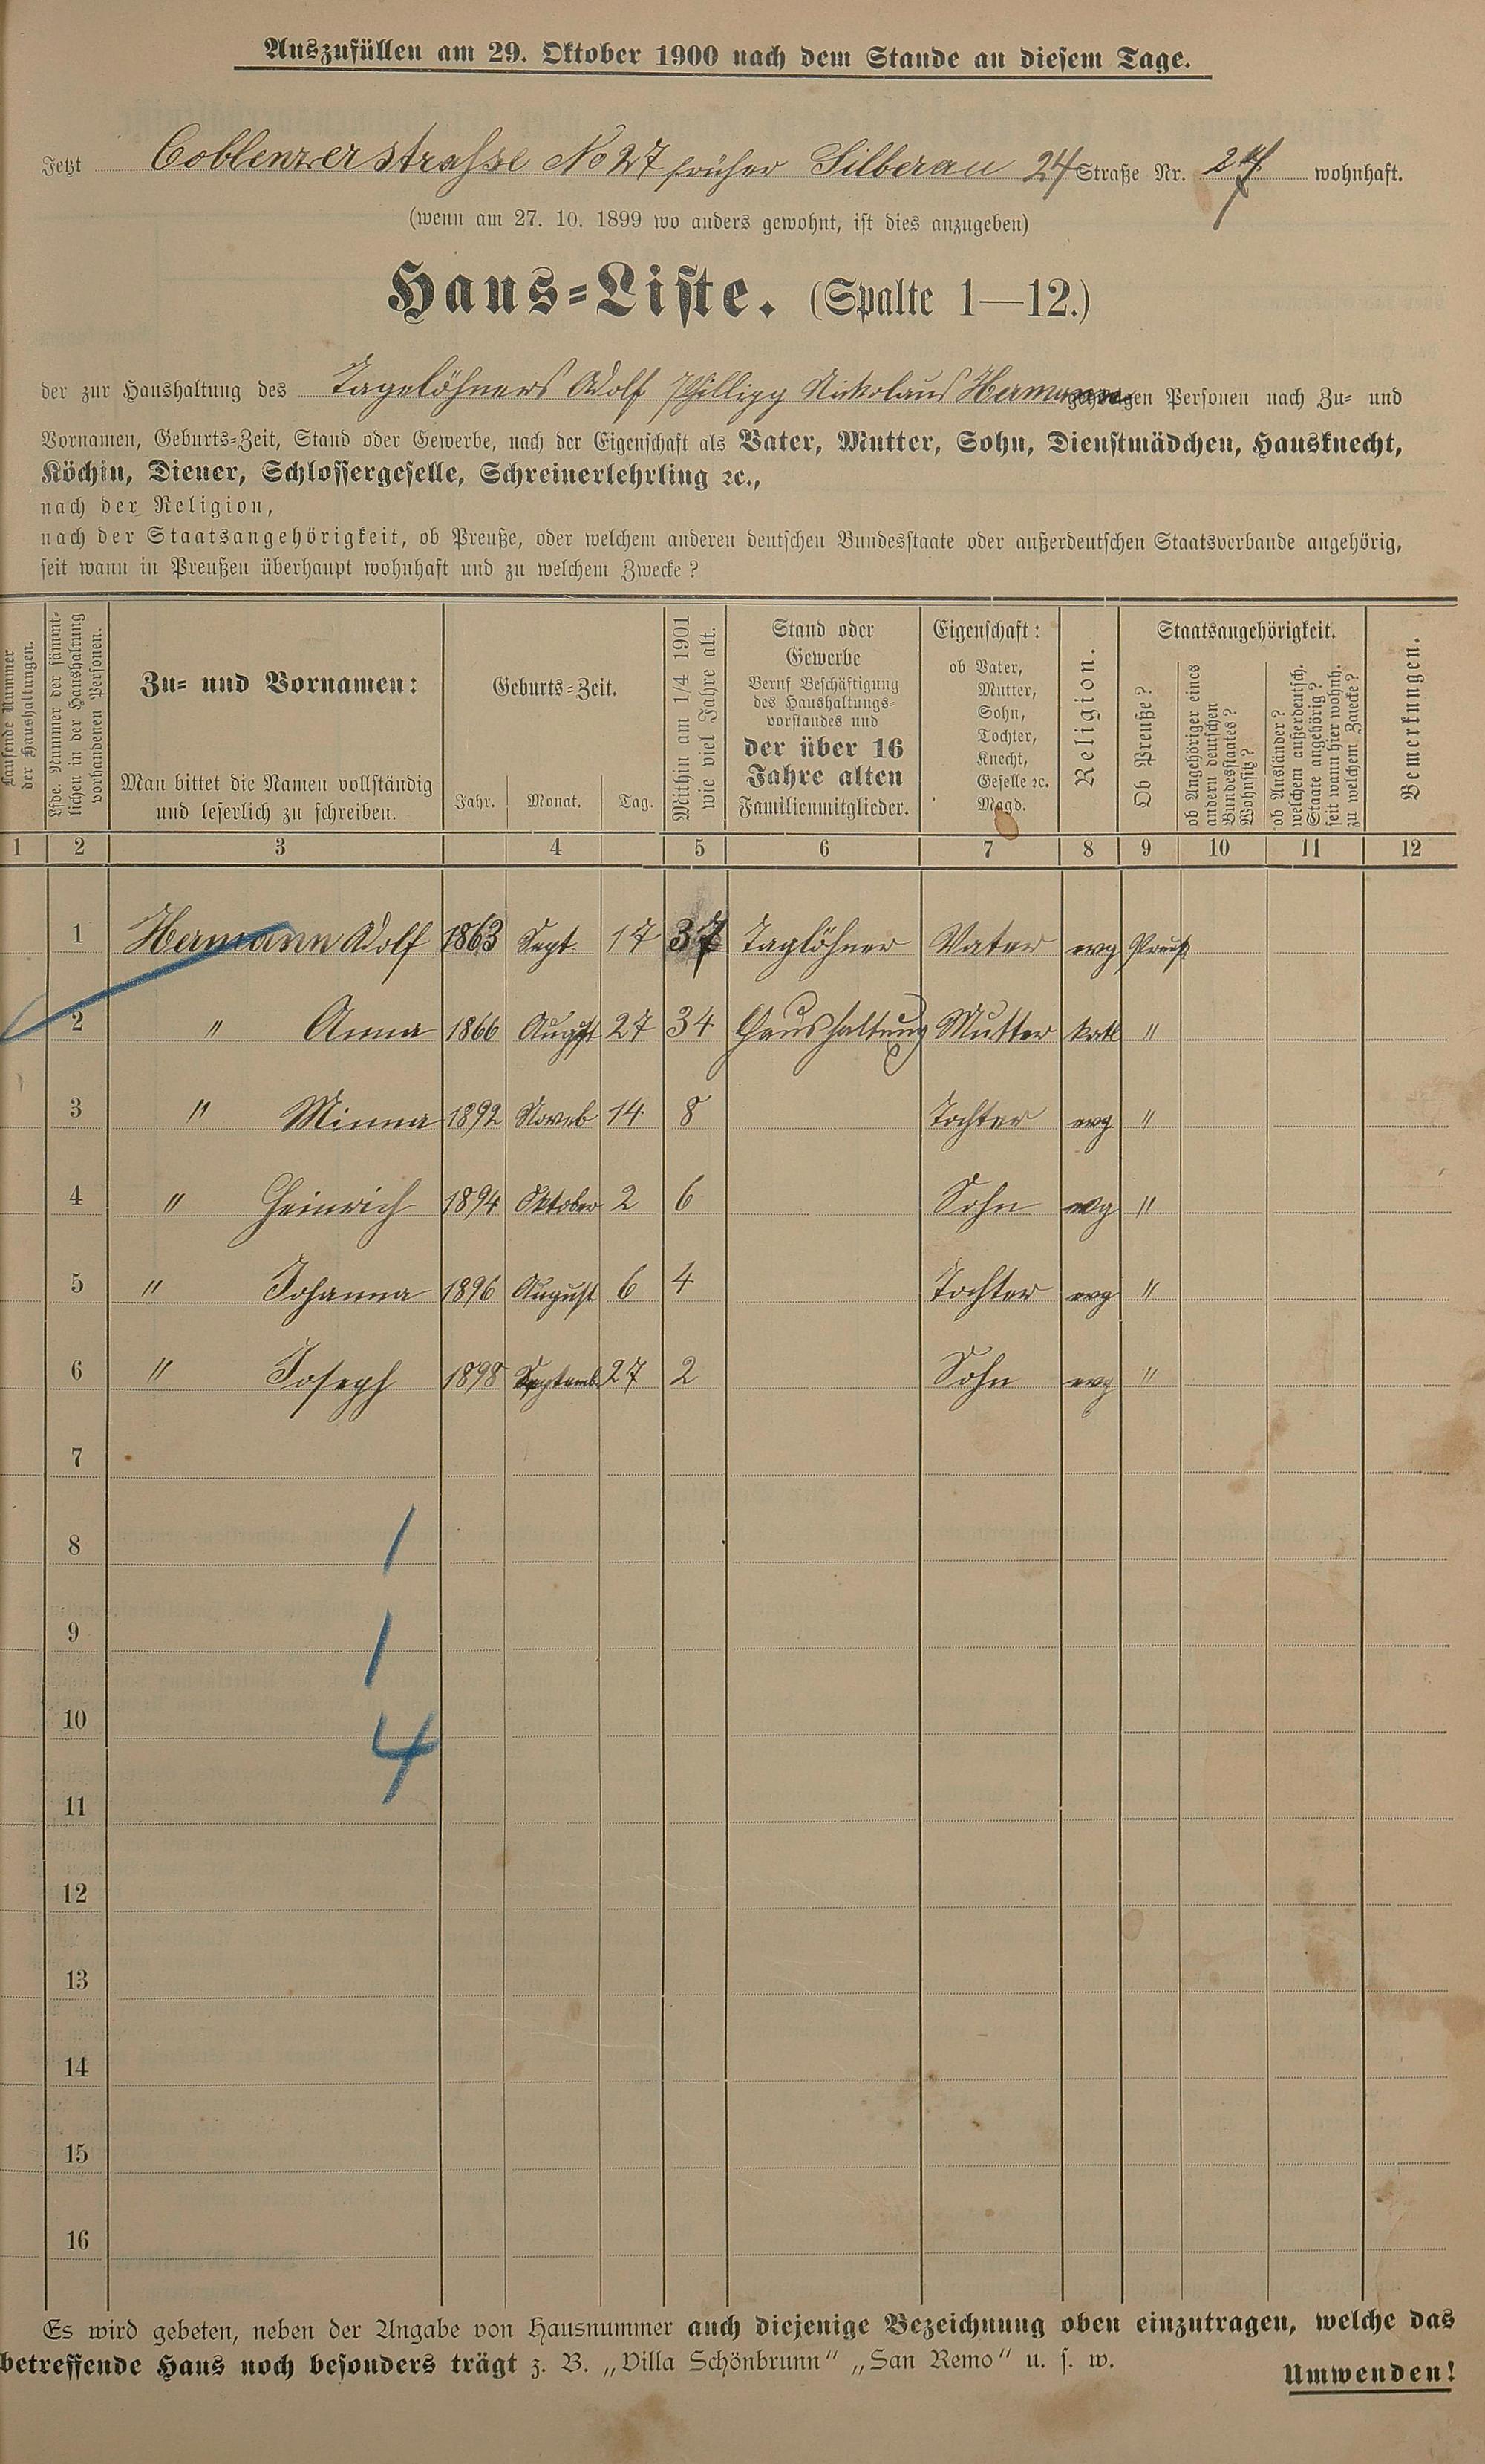 Auszufüllen am 29. Oktober 1900 nach dem Stande an diesem Tage.
Jetzt Coblenzerstraße No 27 früher Silberau 24 Straße Nr. 27 wohnhaft.
(wenn am 27. 10. 1899 wo anders gewohnt, ist dies anzugeben)
Haus-Liste. (Spalte 1—12.)
der zur Haushaltung des Tagelöhners Adolf Phillipp Nickolaus Hermann gehörigen Personen nach Zu- und
Vornamen, Geburts-Zeit, Stand oder Gewerbe, nach der Eigenschaft als Vater, Mutter, Sohn, Dienstmädchen, Hausknecht,
Köchin, Diener, Schlossergeselle, Schreinerlehrling ꝛc.,
nach der Religion,
nach der Staatsangehörigkeit, ob Preuße, oder welchem anderen deutschen Bundesstaate oder außerdeutschen Staatsverbande angehörig,
seit wann in Preußen überhaupt wohnhaft und zu welchem Zwecke?
Laufende Nummer
der Haushaltungen.
Lfde. Nummer der sämmt-
lichen in der Haushaltung
vorhandenen Personen.
Zu- und Vornamen:
Man bittet die Namen vollständig
und leserlich zu schreiben.
Geburts-Zeit.
Jahr. Monat. Tag.
Mithin am 1/4 1901
wie viel Jahre alt.
Stand oder
Gewerbe
Beruf Beschäftigung
des Haushaltungs-
vorstandes und
der über 16
Jahre alten
Familienmitglieder.
Eigenschaft:
ob Vater,
Mutter,
Sohn,
Tochter,
Knecht,
Geselle ꝛc.
Magd.
Religion.
Staatsangehörigkeit.
Ob Preuße?
ob Angehöriger eines
andern deutschen
Bundesstaates?
Wohnsitz?
ob Ausländer?
welchem außerdeutsch.
Staate angehörig?
seit wann hier wohnh.
zu welchem Zwecke?
Bemerkungen.
1 2 3 4 5 6 7 8 9 10 11 12
1 Hermann Adolf 1863 Sept. 17 37 Taglöhner Vater evg Preuß
2 " Anna 1866 August 27 34 Haushaltung Mutter katl "
3 " Minna 1892 Novmb 14 8 Tochter evg "
4 " Heinrich 1894 Oktober 2 6 Sohn evg "
5 " Johanna 1896 August 6 4 Tochter evg "
6 " Joseph 1898 Septemb. 27 2 Sohn evg "
7
8 1
9 1
10 4
11
12
13
14
15
16
Es wird gebeten, neben der Angabe von Hausnummer auch diejenige Bezeichnung oben einzutragen, welche das
betreffende Haus noch besonders trägt z. B. „Villa Schönbrunn“ „San Remo“ u. s. w.
Umwenden!